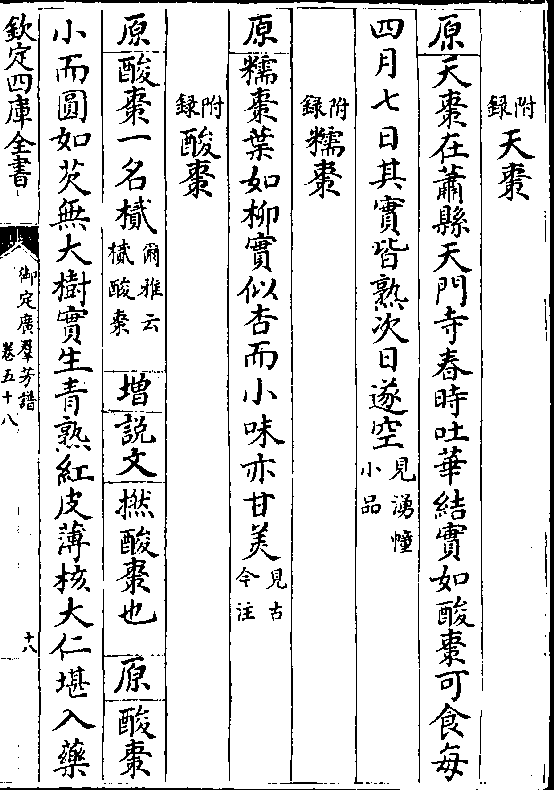 附録天棗
原天棗在蕭縣天門寺春時吐華結實如酸棗可食每
四月七日其實皆熟次日遂空見湧幢小品
附録糯棗
原糯棗葉如柳實似杏而小味亦甘美見古今注
附録酸棗
原酸棗一名樲爾雅云樲酸棗增說文橪酸棗也原酸棗
小而圓如芡無大樹實生青熟紅皮薄核大仁堪入藥
欽定四庫全書
御定廣羣芳譜
卷五十八
十八